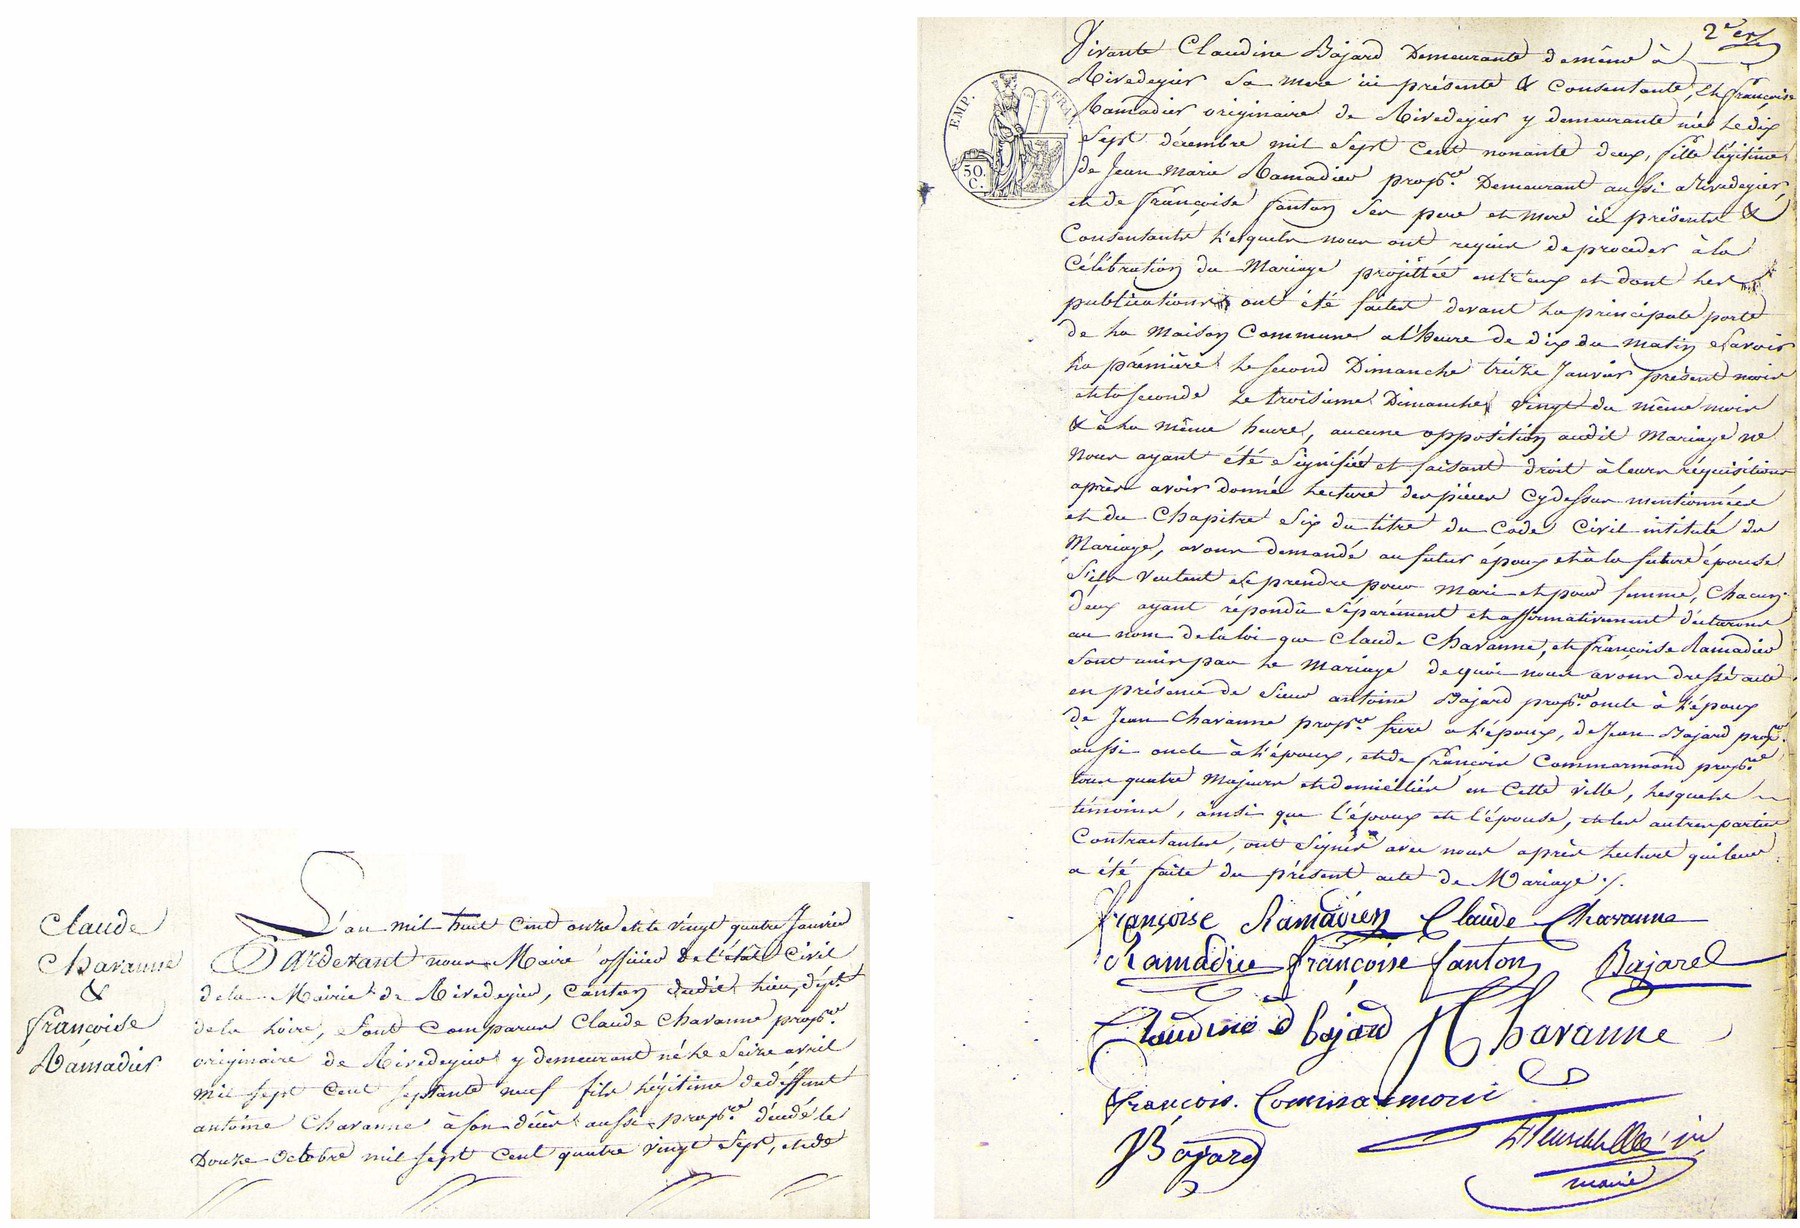 Claude
Chavanne
&
françoise
Ramadier
L'an mil huit cent onze et le vingt quatre Janvier
Pardevant nous Maire officier de l'état Civil
de la Mairie de Rivedegier, canton dudit lieu, dépt
de la Loire, sont comparus Claude Chavanne propre
originaire de Rivedegier y demeurant né le seize avril
mil sept cent septante neuf fils légitime de deffunt
antoine Chavanne à son décès aussi propre décédé le
Douze Octobre mil sept cent quatre vingt sept, et de
2e
Vivante Claudine Bajard Demeurante de même à
Rivedegier sa mere ici présente & Consentante, Et françoise
Ramadier originaire de Rivedegier y demeurante née le dix
Sept décembre mil sept cent nonante deux, fille légitime
de Jean Marie Ramadier propre Demeurant aussi a Rivedegier
et de françoise fanton ses pere et mere ici présents &
Consentants lesquels nous ont requis de proceder à la
Célébration du Mariage projettée entr'eux et dont les
publications ont été faites devant la principale porte
de la Maison Commune a l'heure de dix du matin Savoir
la première le second Dimanche treize Janvier présent mois
et la seconde le troisième Dimanche vingt du même mois
& à la même heure, aucune opposition audit Mariage ne
Nous ayant été Signifiée et faisant droit à leurs réquisitions
après avoir donné lecture des pièces Cydessus mentionnées
et du Chapitre Six du titre du Code Civil intitulé du
Mariage, avons demandé au futur époux et à la future épouse
S'ils veulent se prendre pour mari et pour femme, Chacun
d'eux ayant répondu séparément et affirmativement déclarons
au nom de la loi que Claude Chavanne, et françoise Ramadier
sont unis par le Mariage de quoi nous avons dressé acte
en présence de Sieur antoine Bajard propre oncle à l'époux
de Jean Chavanne propre frere a l'époux, de Jean Bajard propre
aussi oncle à l'époux, et de françois Commarmond propre
tous quatre Majeurs et domiciliés en Cette ville, lesquels
témoins, ainsi que l'époux et l'épouse, et les autres parties
Contractantes, ont Signés avec nous après lecture qui leur
a été faite du présent acte de Mariage ./.
françoise Ramadier Claude Chavanne
Ramadier françoise fanton Bajard
Claudine Bajard J Chavanne
françois Commarmond
J Bajard
maire
EMP. FRAN.
50.
C.